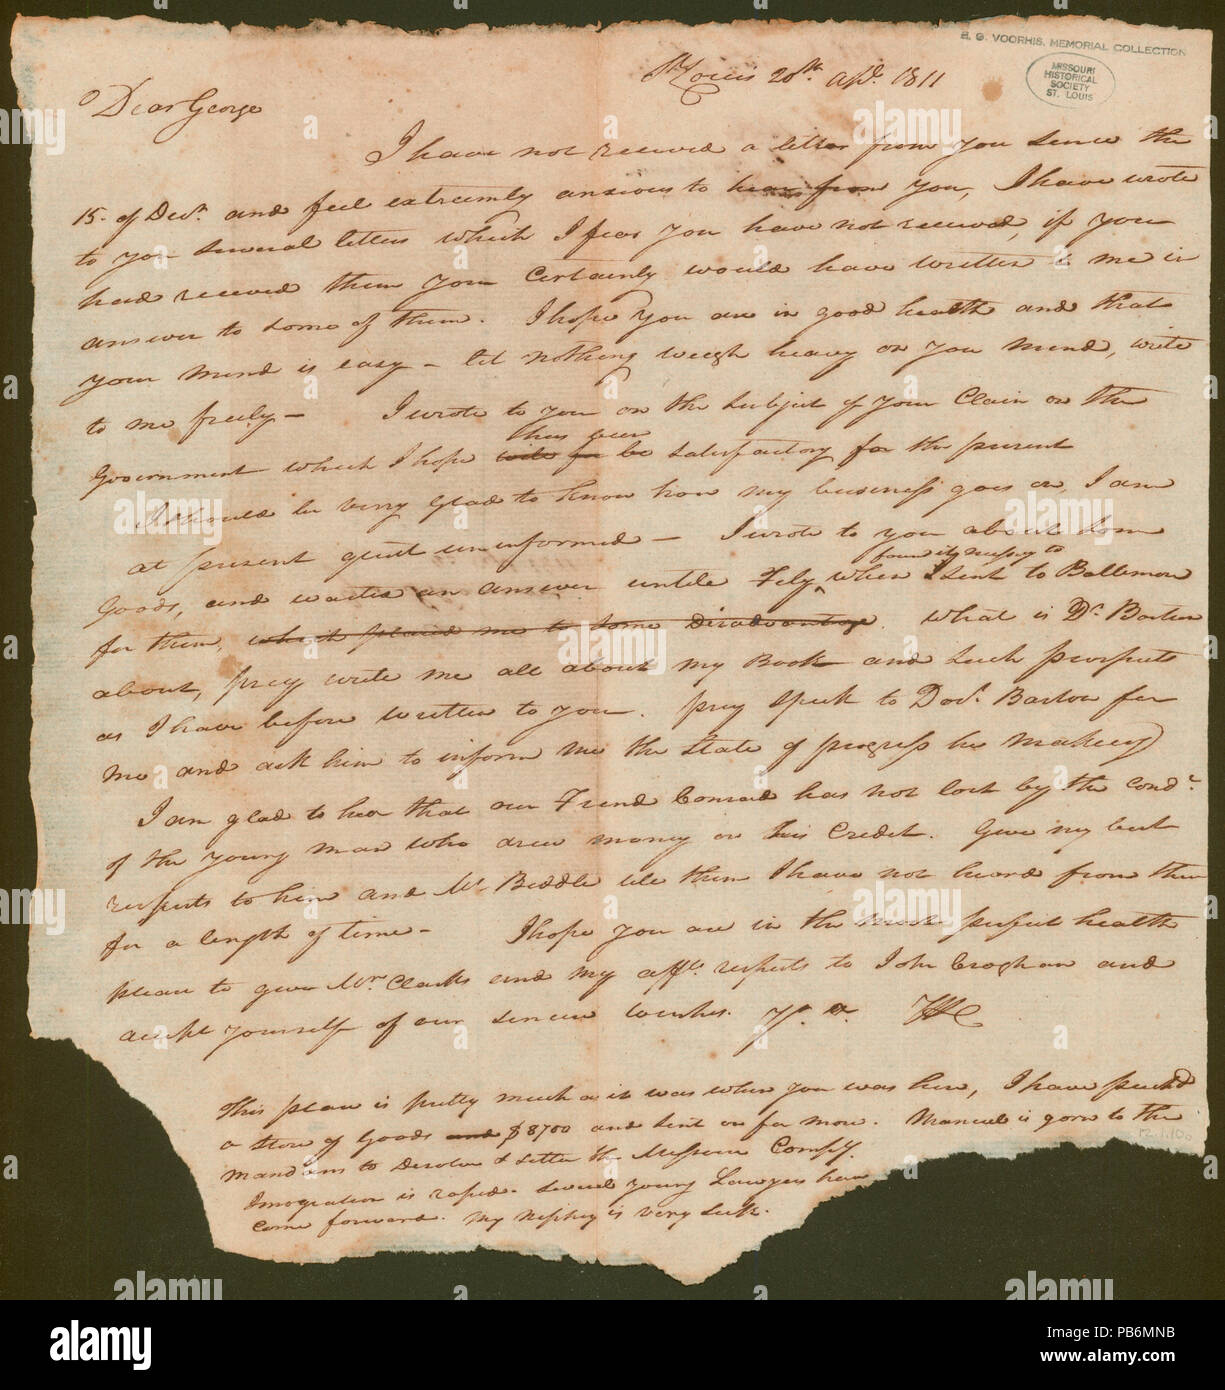 E. G. VOORHIS. MEMORIAL COLLECTION
MISSOURI
HISTORICAL
SOCIETY
ST. LOUIS
St Louis 20th apl. 1811
Dear George
I have not received a letter from you sence the
15. of Decr. and feel extreemly anxious to hear from you, I have wrote
to you several letters which I fear you have not received, if you
had received them you Certainly would have written to me in
answer to some of them. I hope you are in good health and that
your mind is easy – let nothing weigh heavy on you mind, write
to me freely – I wrote to you on the subject of your Claim on the
Government which I hope will be satisfactory for the present
thus far
I should be very glad to know how my business goes on, I am
at present quit uninformed – I wrote to you about som
Goods, and waited an answer untile Feby, when I sent to Baltimore
found it necessy to
for them, which placed me to some disadvantage. What is Dr. Barton
about, pray write me all about my Book and such prospects
as I have before written to you. pray speek to Doct. Barton for
me and ask him to inform me the state of progress he makeing
I am glad to hear that our Frend Conrad has not lost by the condt.
of the young man who drew money on his Credit. Give my best
respects to him and Mr. Biddle tele them I have not heard from them
for a length of time – I hope you are in the most perfect health
pleas to give Mrs. Clarks and my affts. respects to John Croghan and
accept yourself of our sincere wishes. Yr. &c. WC
This place is pretty much as it was when you was here, I have purchd
a store of Goods and $8700 and sent on for more. Manuel is gorn to the
mandans to Disolve & settle the Missouri Compy.
Imegration is rapid. several young Lawyers have
come forward. My nephey is very sick.
12.1.100
alamy
Image ID: PB6MNB
www.alamy.com